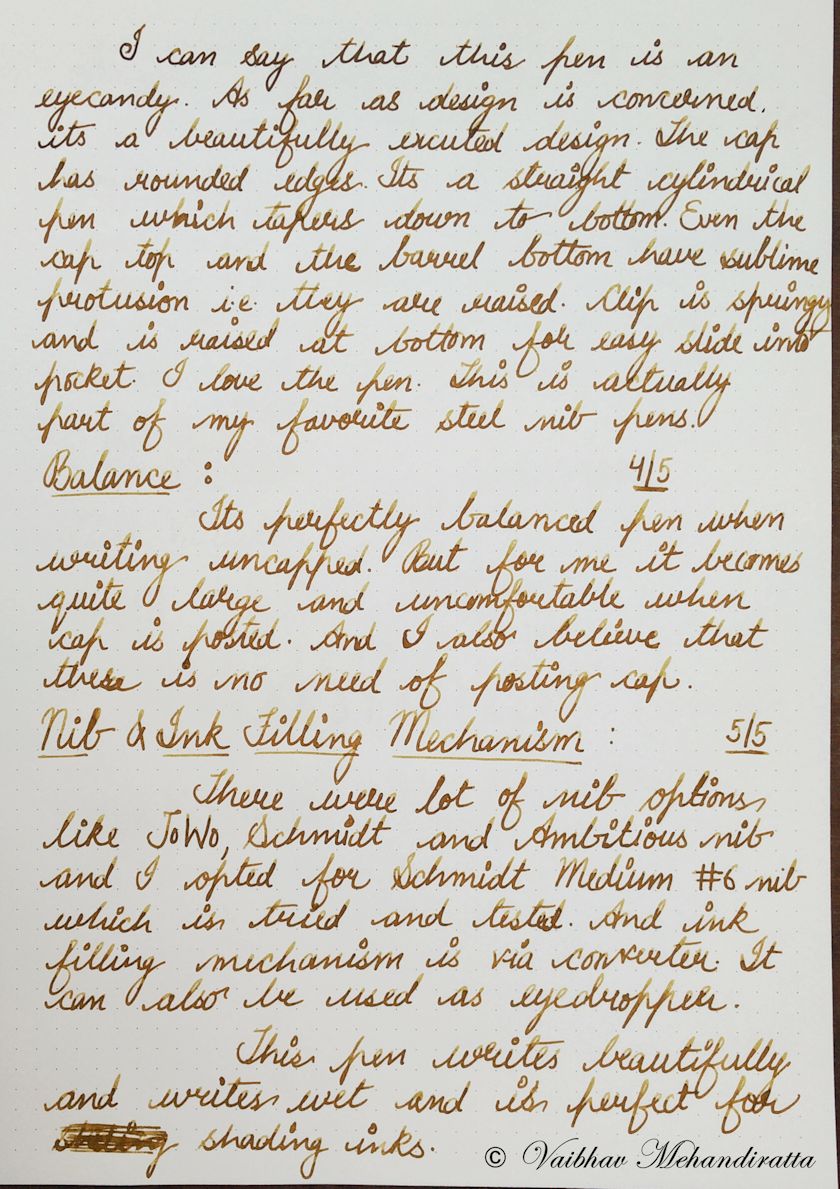 I can say that this pen is an
eyecandy. As far as design is concerned,
its a beautifully excuted design. The cap
has rounded edges. Its a straight cylindrical
pen which tapers down to bottom. Even the
cap top and the barrel bottom have sublime
protusion i.e. they are raised. Clip is springy
and is raised at bottom for easy slide into
pocket. I love the pen. This is actually
part of my favorite steel nib pens.
Balance : 4/5
Its perfectly balanced pen when
writing uncapped. But for me it becomes
quite large and uncomfortable when
cap is posted. And I also believe that
there is no need of posting cap.
Nib & Ink Filling Mechanism : 5/5
There were lot of nib options
like JoWo, Schmidt and Ambitious nib
and I opted for Schmidt Medium #6 nib
which is tried and tested. And ink
filling mechanism is via converter. It
can also be used as eyedropper.
This pen writes beautifully
and writes wet and is perfect for
shading inks.
© Vaibhav Mehandiratta